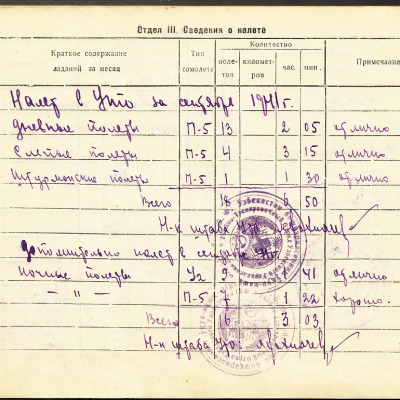 Отдел III. Сведения о налете
Краткое содержание заданий за месяц
Тип самолета
Количество
полетов
километров
час.
мин.
Примечание
Налет в УТО за сентябрь 1941 г.
Дневные полеты П-5 13 2 05 отлично
Слепые полеты П-5 4 3 15 отлично
Штурманские полеты П-5 1 1 30 отлично
Всего 18 6 50
Н-к штаба УТО
Дополнительно налет в сентябре
Ночные полеты У2 9 1 41 отлично
— " — П-5 7 1 22 хорошо.
Всего 16 3 03
Н-к штаба УТО